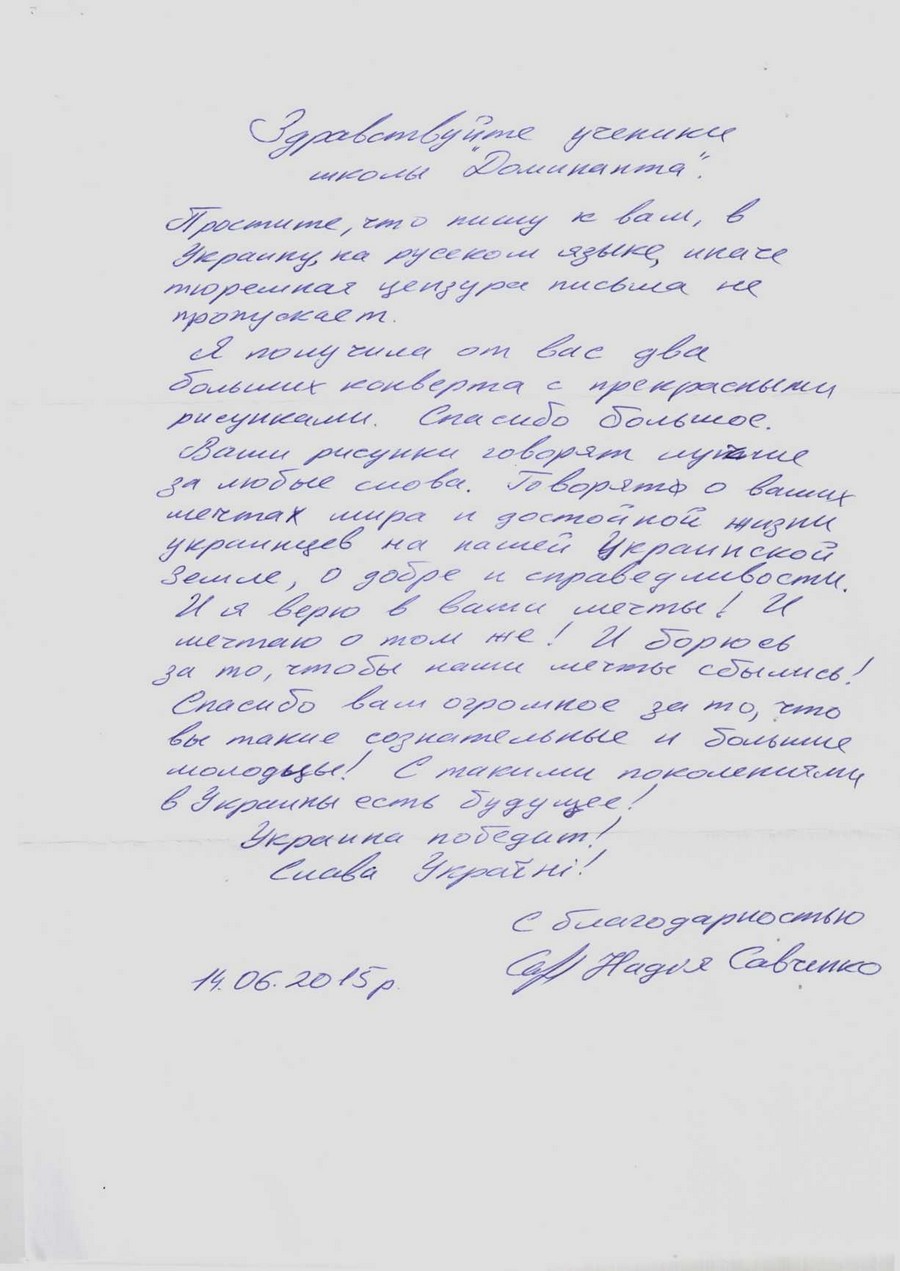 Здравствуйте ученики
школы "Доминанта".
Простите, что пишу к вам, в
Украину, на русском языке, иначе
тюремная цензура письма не
пропускает.
Я получила от вас два
больших конверта с прекрасными
рисунками. Спасибо большое.
Ваши рисунки говорят лучше
за любые слова. Говорят о ваших
мечтах мира и достойной жизни
украинцев на нашей Украинской
Земле, о добре и справедливости.
И я верю в ваши мечты! И
мечтаю о том же! И борюсь
за то, чтобы наши мечты сбылись!
Спасибо вам огромное за то, что
вы такие сознательные и большие
молодцы! С такими поколениями
в Украины есть будущее!
Украина победит!
Слава Україні!
С благодарностью
Надія Савченко
14.06.2015р.